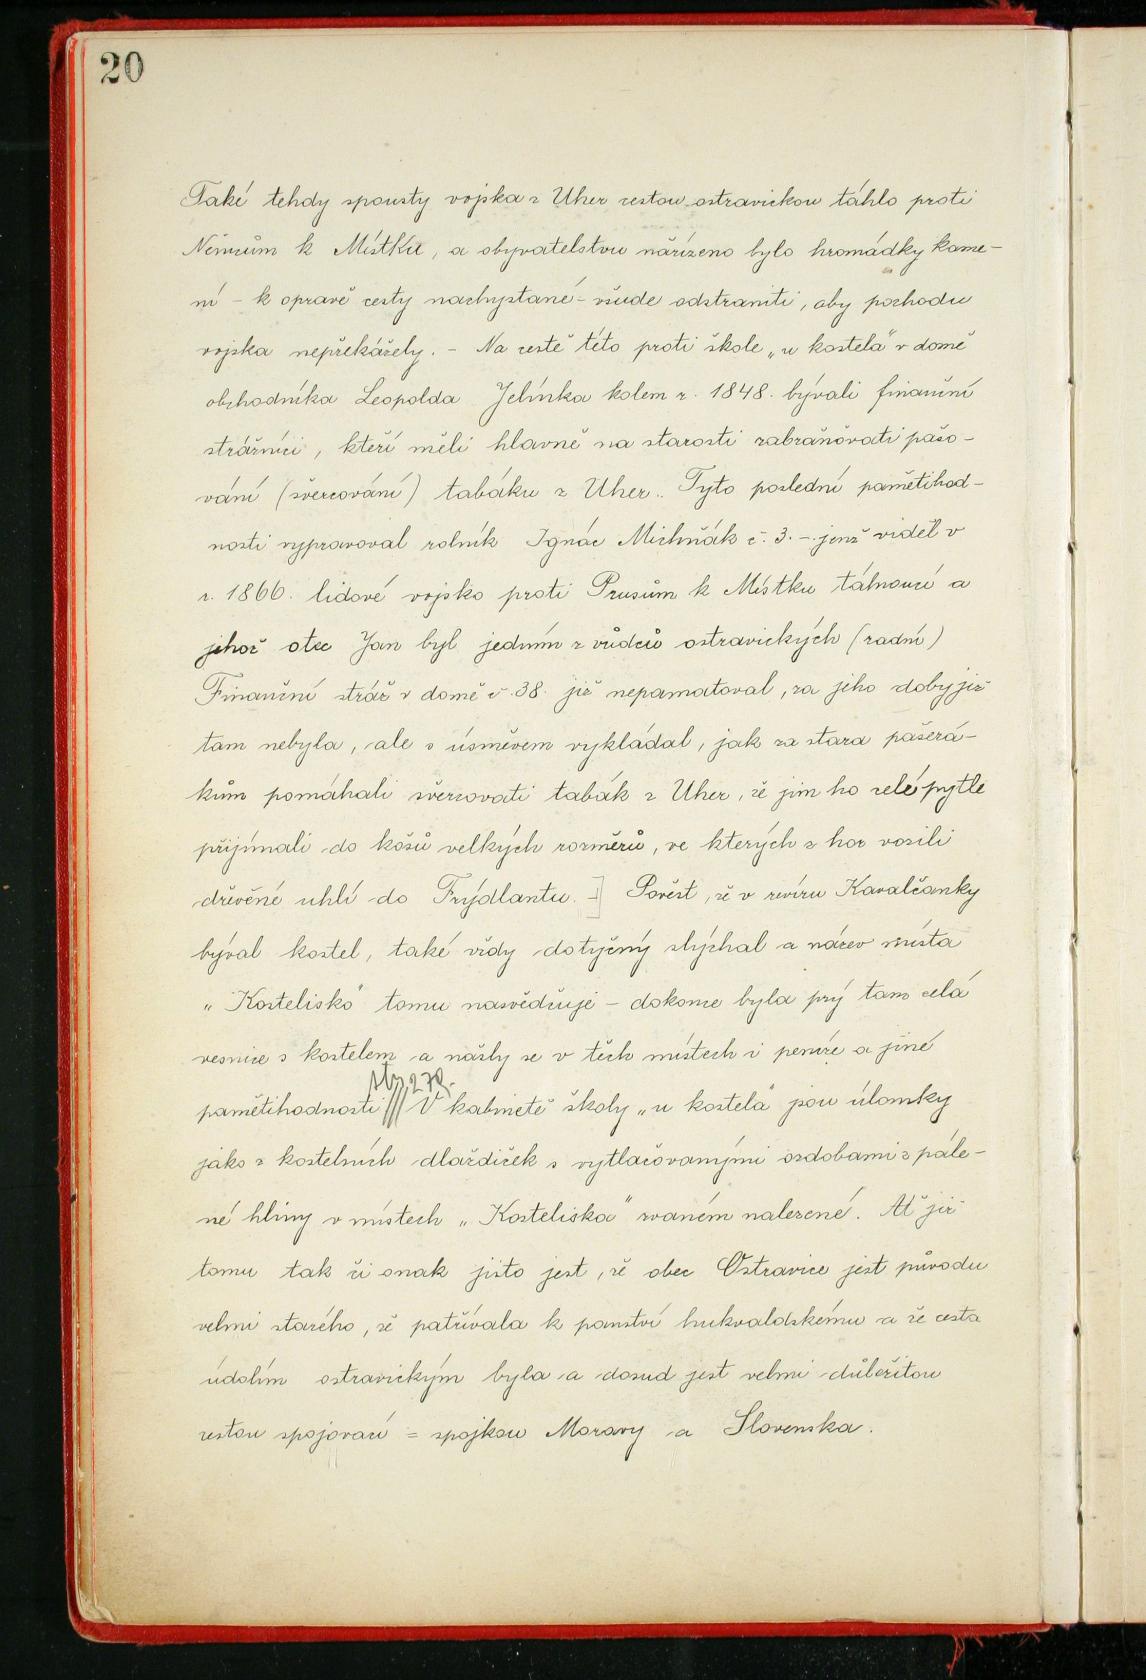 20
Také tehdy spousty vojska z Uher cestou ostravickou táhlo proti
Němcům k Místku, a obyvatelstvu nařízeno bylo hromádky kame-
ní - k opravě cesty nachystané - všude odstraniti, aby pochodu
vojska nepřekážely. - Na cestě této proti škole „u kostela" v domě
obchodníka Leopolda Jelínka kolem r. 1848. bývali finanční
strážníci, kteří měli hlavně na starosti zabraňovati pašo-
vání (švercování) tabáku z Uher. Tyto poslední pamětihod-
nosti vypravoval rolník Ignác Michňák č. 3. - jenž viděl v
r. 1866. lidové vojsko proti Prusům k Místku táhnoucí a
jehož otec Jan byl jedním z vůdců ostravických (radní)
Finanční stráž v domě č. 38. již nepamatoval, za jeho doby již
tam nebyla, ale s úsměvem vykládal, jak za stara pašerá-
kům pomáhali švercovati tabák z Uher, že jim ho celé pytle
přijímali do košů velkých rozměrů, ve kterých z hor vozili
dřevěné uhlí do Frýdlantu. -] Pověst, že v revíru Kavalčanky
býval kostel, také vždy dotyčný slýchal a název místa
„Kostelisko" tomu nasvědčuje - dokonce byla prý tam celá
vesnice s kostelem a našly se v těch místech i peníze a jiné
str. 279.
pamětihodnosti /// V kabinetě školy „u kostela" jsou úlomky
jako z kostelních dlaždiček s vytlačovanými ozdobami z pále-
né hlíny v místech „Kosteliska" zvaném nalezené. Ať již
tomu tak či onak jisto jest, že obec Ostravice jest původu
velmi starého, že patřívala k panství hukvaldskému a že cesta
údolím ostravickým byla a dosud jest velmi důležitou
cestou spojovací = spojkou Moravy a Slovenska.